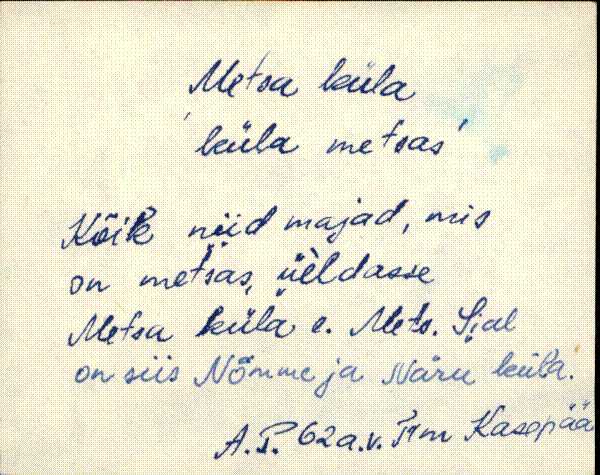 Metsa küla
'küla metsas'
Kõik niid majad, mis
on metsas, üeldasse
Metsa küla e. Mets. Sial
on siis Nõmme ja Näru küla.
A. P. 62 a. v. Trm Kasepää